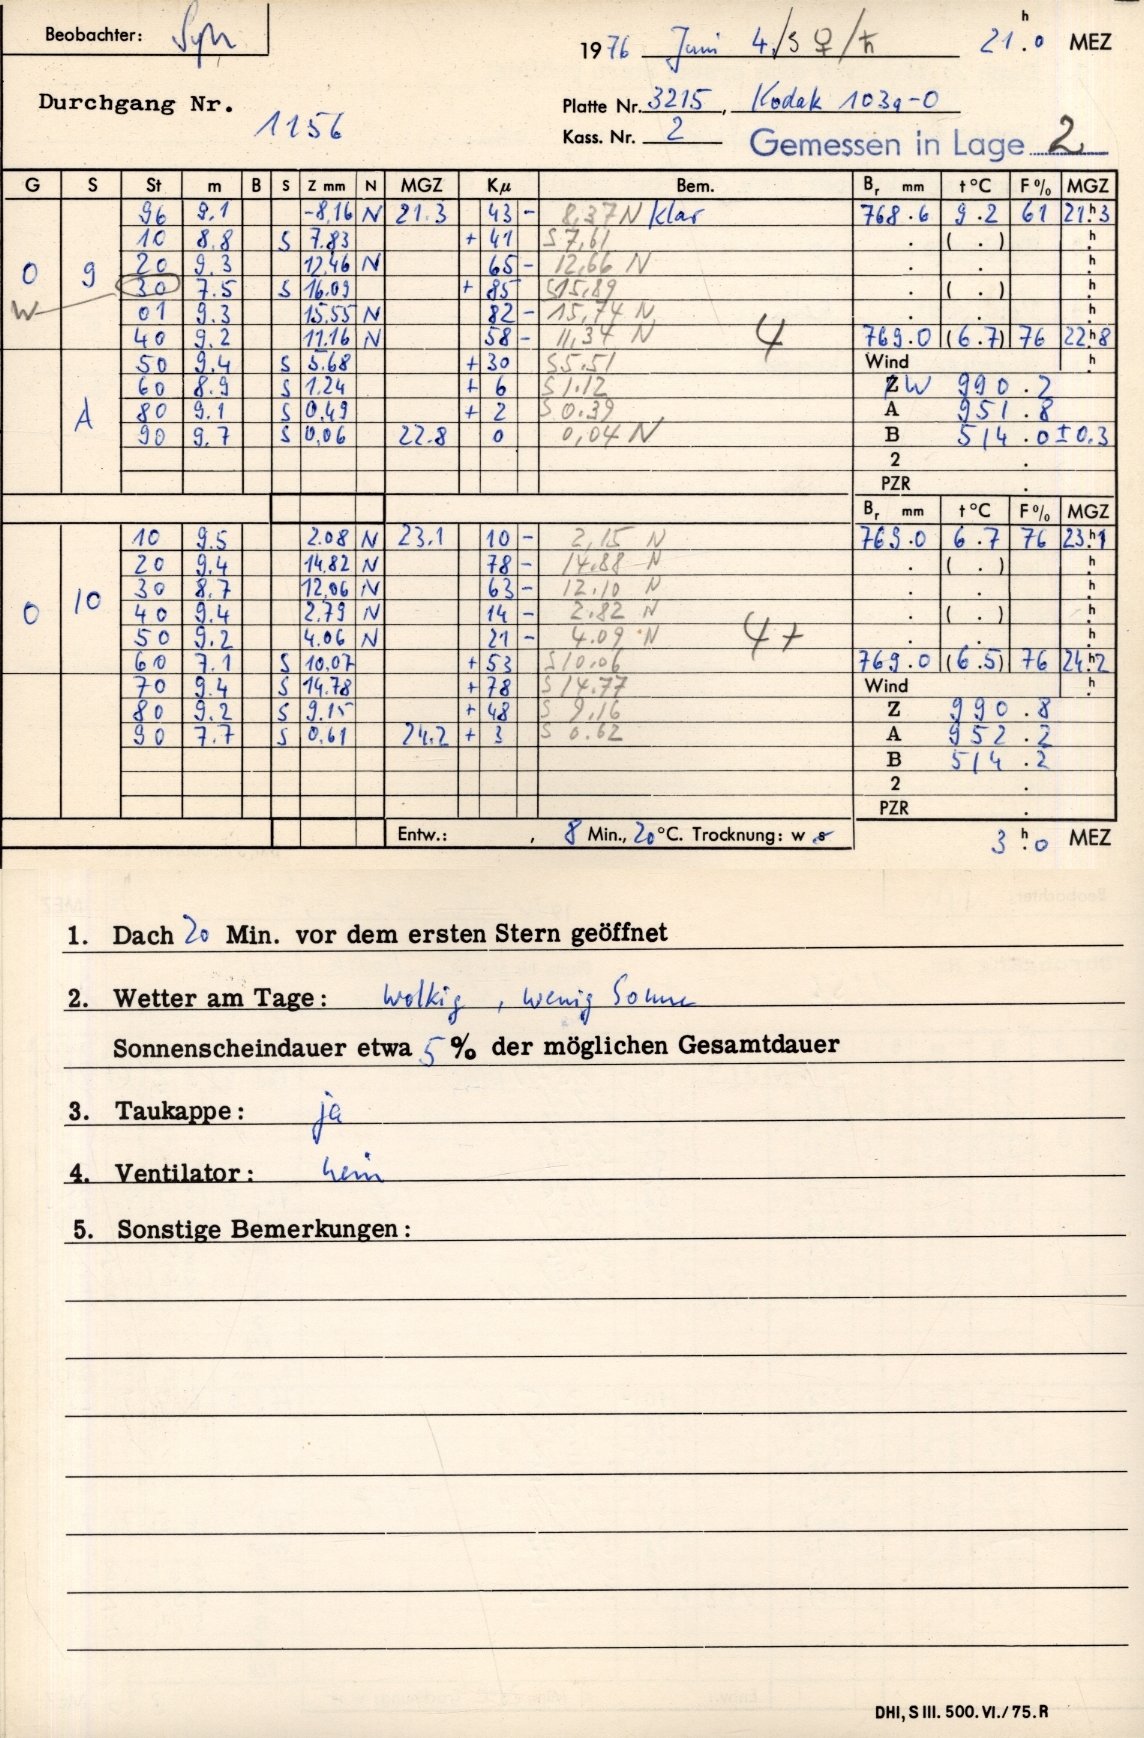 Beobachter:
1976 Juni 4/5 ♀/♄ 21.ʰ0 MEZ
Durchgang Nr. 1156
Platte Nr. 3215, Kodak 103a-O
Kass. Nr. 2 Gemessen in Lage 2
G S St m B S Z mm N MGZ Kμ Bem. Br mm t°C F% MGZ
96 9.1 -8,16 N 21.3 43 - 8,37 N Klar 768.6 9.2 61 21ʰ3
10 8.8 S 7.83 + 41 S 7,61 . ( . ) ʰ
0 9 20 9.3 12,46 N 65 - 12,66 N . . ʰ
W 30 7.5 S 16.09 + 85 S 15,89 . ( . ) ʰ
01 9.3 15,55 N 82 - 15,74 N . . ʰ
40 9.2 11.16 N 58 - 11,34 N 4 769.0 (6.7) 76 22ʰ8
50 9.4 S 5.68 + 30 S 5.51 Wind ʰ
60 8.9 S 1.24 + 6 S 1.12 Z W 990.2
A 80 9.1 S 0,49 + 2 S 0.39 A 951.8
90 9.7 S 0,06 22.8 0 0,04 N B 514.0 ±0.3
2 .
PZR .
Br mm t°C F% MGZ
10 9.5 2.08 N 23.1 10 - 2,15 N 769.0 6.7 76 23ʰ1
20 9.4 14,82 N 78 - 14.88 N . ( . ) ʰ
30 8.7 12,06 N 63 - 12.10 N . . ʰ
0 10 40 9.4 2.79 N 14 - 2.82 N . ( . ) ʰ
50 9.2 4.06 N 21 - 4.09 N 4+ . . ʰ
60 7.1 S 10,07 + 53 S 10.06 769.0 (6.5) 76 24ʰ2
70 9.4 S 14.78 + 78 S 14.77 Wind ʰ
80 9.2 S 9.15 + 48 S 9,16 Z 990.8
90 7.7 S 0,61 24.2 + 3 S 0.62 A 952.2
B 514.2
2 .
PZR .
Entw.: , 8 Min., 20 °C. Trocknung: w s 3ʰ.0 MEZ
1. Dach 20 Min. vor dem ersten Stern geöffnet
2. Wetter am Tage: wolkig, wenig Sonne
Sonnenscheindauer etwa 5 % der möglichen Gesamtdauer
3. Taukappe: ja
4. Ventilator: nein
5. Sonstige Bemerkungen:
DHI, S III. 500. VI./75. R